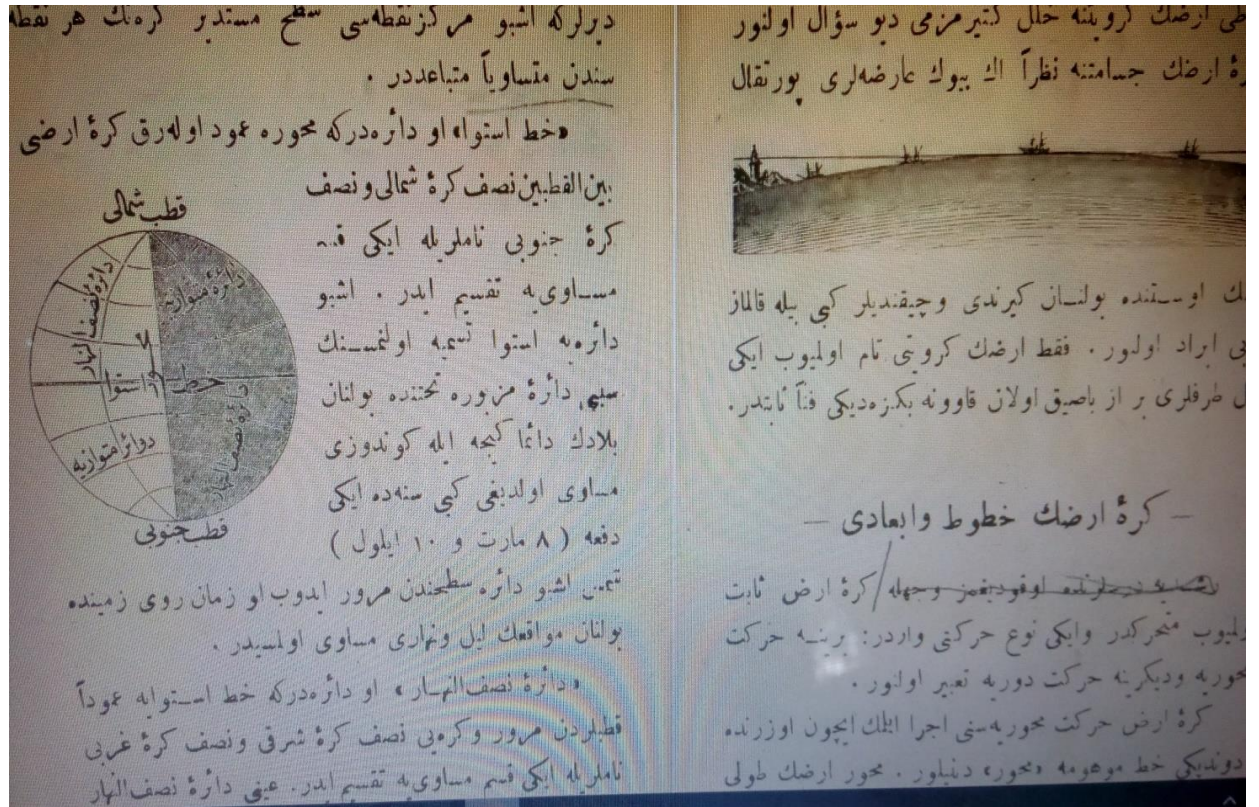 ارضك كرويتنه خلل كتيرمزمی ديو سؤال اولنور
ارضك جسامتنه نظراً اك بيوك عارضه‌لری پورتقال
اوستنده بولنان كيرندی و چيقنديلر كبی بيله قالماز
ايراد اولنور . فقط ارضك كرويتی تام اولميوب ايكی
طرفلری بر از باصيق اولان قاوونه بكزه‌ديكی فناً ثابتدر.
— كرهٔ ارضك خطوط وابعادی —
اوقوديغمز وجهله كرهٔ ارض ثابت
متحركدر وايكی نوع حركتی واردر: برينه حركت
محوريه وديكرينه حركت دوريه تعبير اولنور .
كرهٔ ارض حركت محوريه‌سنی اجرا ايتمك ايچون اوزرنده
دونديكی خط موهومه «محور» دنيلور . محور ارضك طولی
ديرلركه اشبو مركز نقطه‌سی سطح مستدير كره‌نك هر نقطه
سندن متساوياً متباعددر .
«خط استوا» او دائره‌دركه محوره عمود اوله‌رق كرهٔ ارضی
بين القطبين نصف كرهٔ شمالی و نصف
كرهٔ جنوبی ناملريله ايكی
مساوی‌يه تقسيم ايدر . اشبو
دائره‌يه استوا تسميه اولنمسنك
سببی دائرهٔ مزبوره تحتنده بولنان
بلادك دائما كيجه ايله كوندوزی
مساوی اولديغی كبی سنه‌ده ايكی
دفعه ( ٨ مارت و ١٠ ايلول )
اشبو دائره سطحندن مرور ايدوب او زمان روی زمينده
بولنان مواقعك ليل ونهاری مساوی اولمسيدر .
«دائرهٔ نصف‌النهار» او دائره‌دركه خط استوايه عموداً
قطبلردن مرور وكره‌یی نصف كرهٔ شرقی ونصف كرهٔ غربی
ناملريله ايكی قسم مساوی‌يه تقسيم ايدر. عينی دائرهٔ نصف‌النهار
قطب شمالی
دائرهٔ نصف النهار
دائرهٔ متوازيه
خط استوا
دوائر متوازيه
دائرهٔ نصف النهار
قطب جنوبی